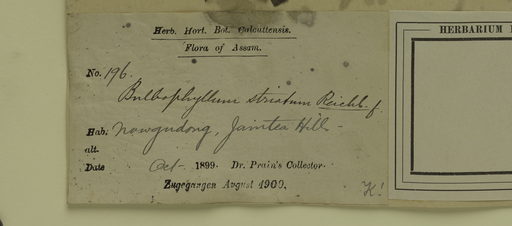 Herb. Hort. Bot. Calcuttensis.
Flora of Assam.
No. 196.
Bulbophyllum striatum Reichb. f.
Hab. Nowgudong, Jaintea Hills -
alt.
Date Oct - 1899. Dr. Prain's Collector.
Zugegangen August 1900.
K!
HERBARIUM